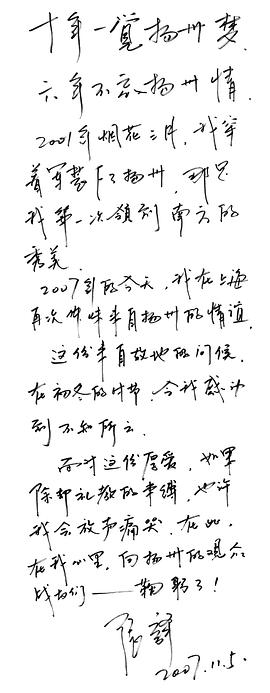 十年一觉扬州梦
六年不忘扬州情
2001年烟花三月，我穿
着军装下了扬州，那是
我第一次领到南方的
秀美
2007年的今天，我在上海
再次体味来自扬州的情谊
这份来自故地的问候，
在初冬的时节，令我感动
到不知所云.
面对这份厚爱，如果
除却礼教的束缚，也许
我会放声痛哭，在此，
在我心里，向扬州的观众
战友们——鞠躬了！
2007.11.5.